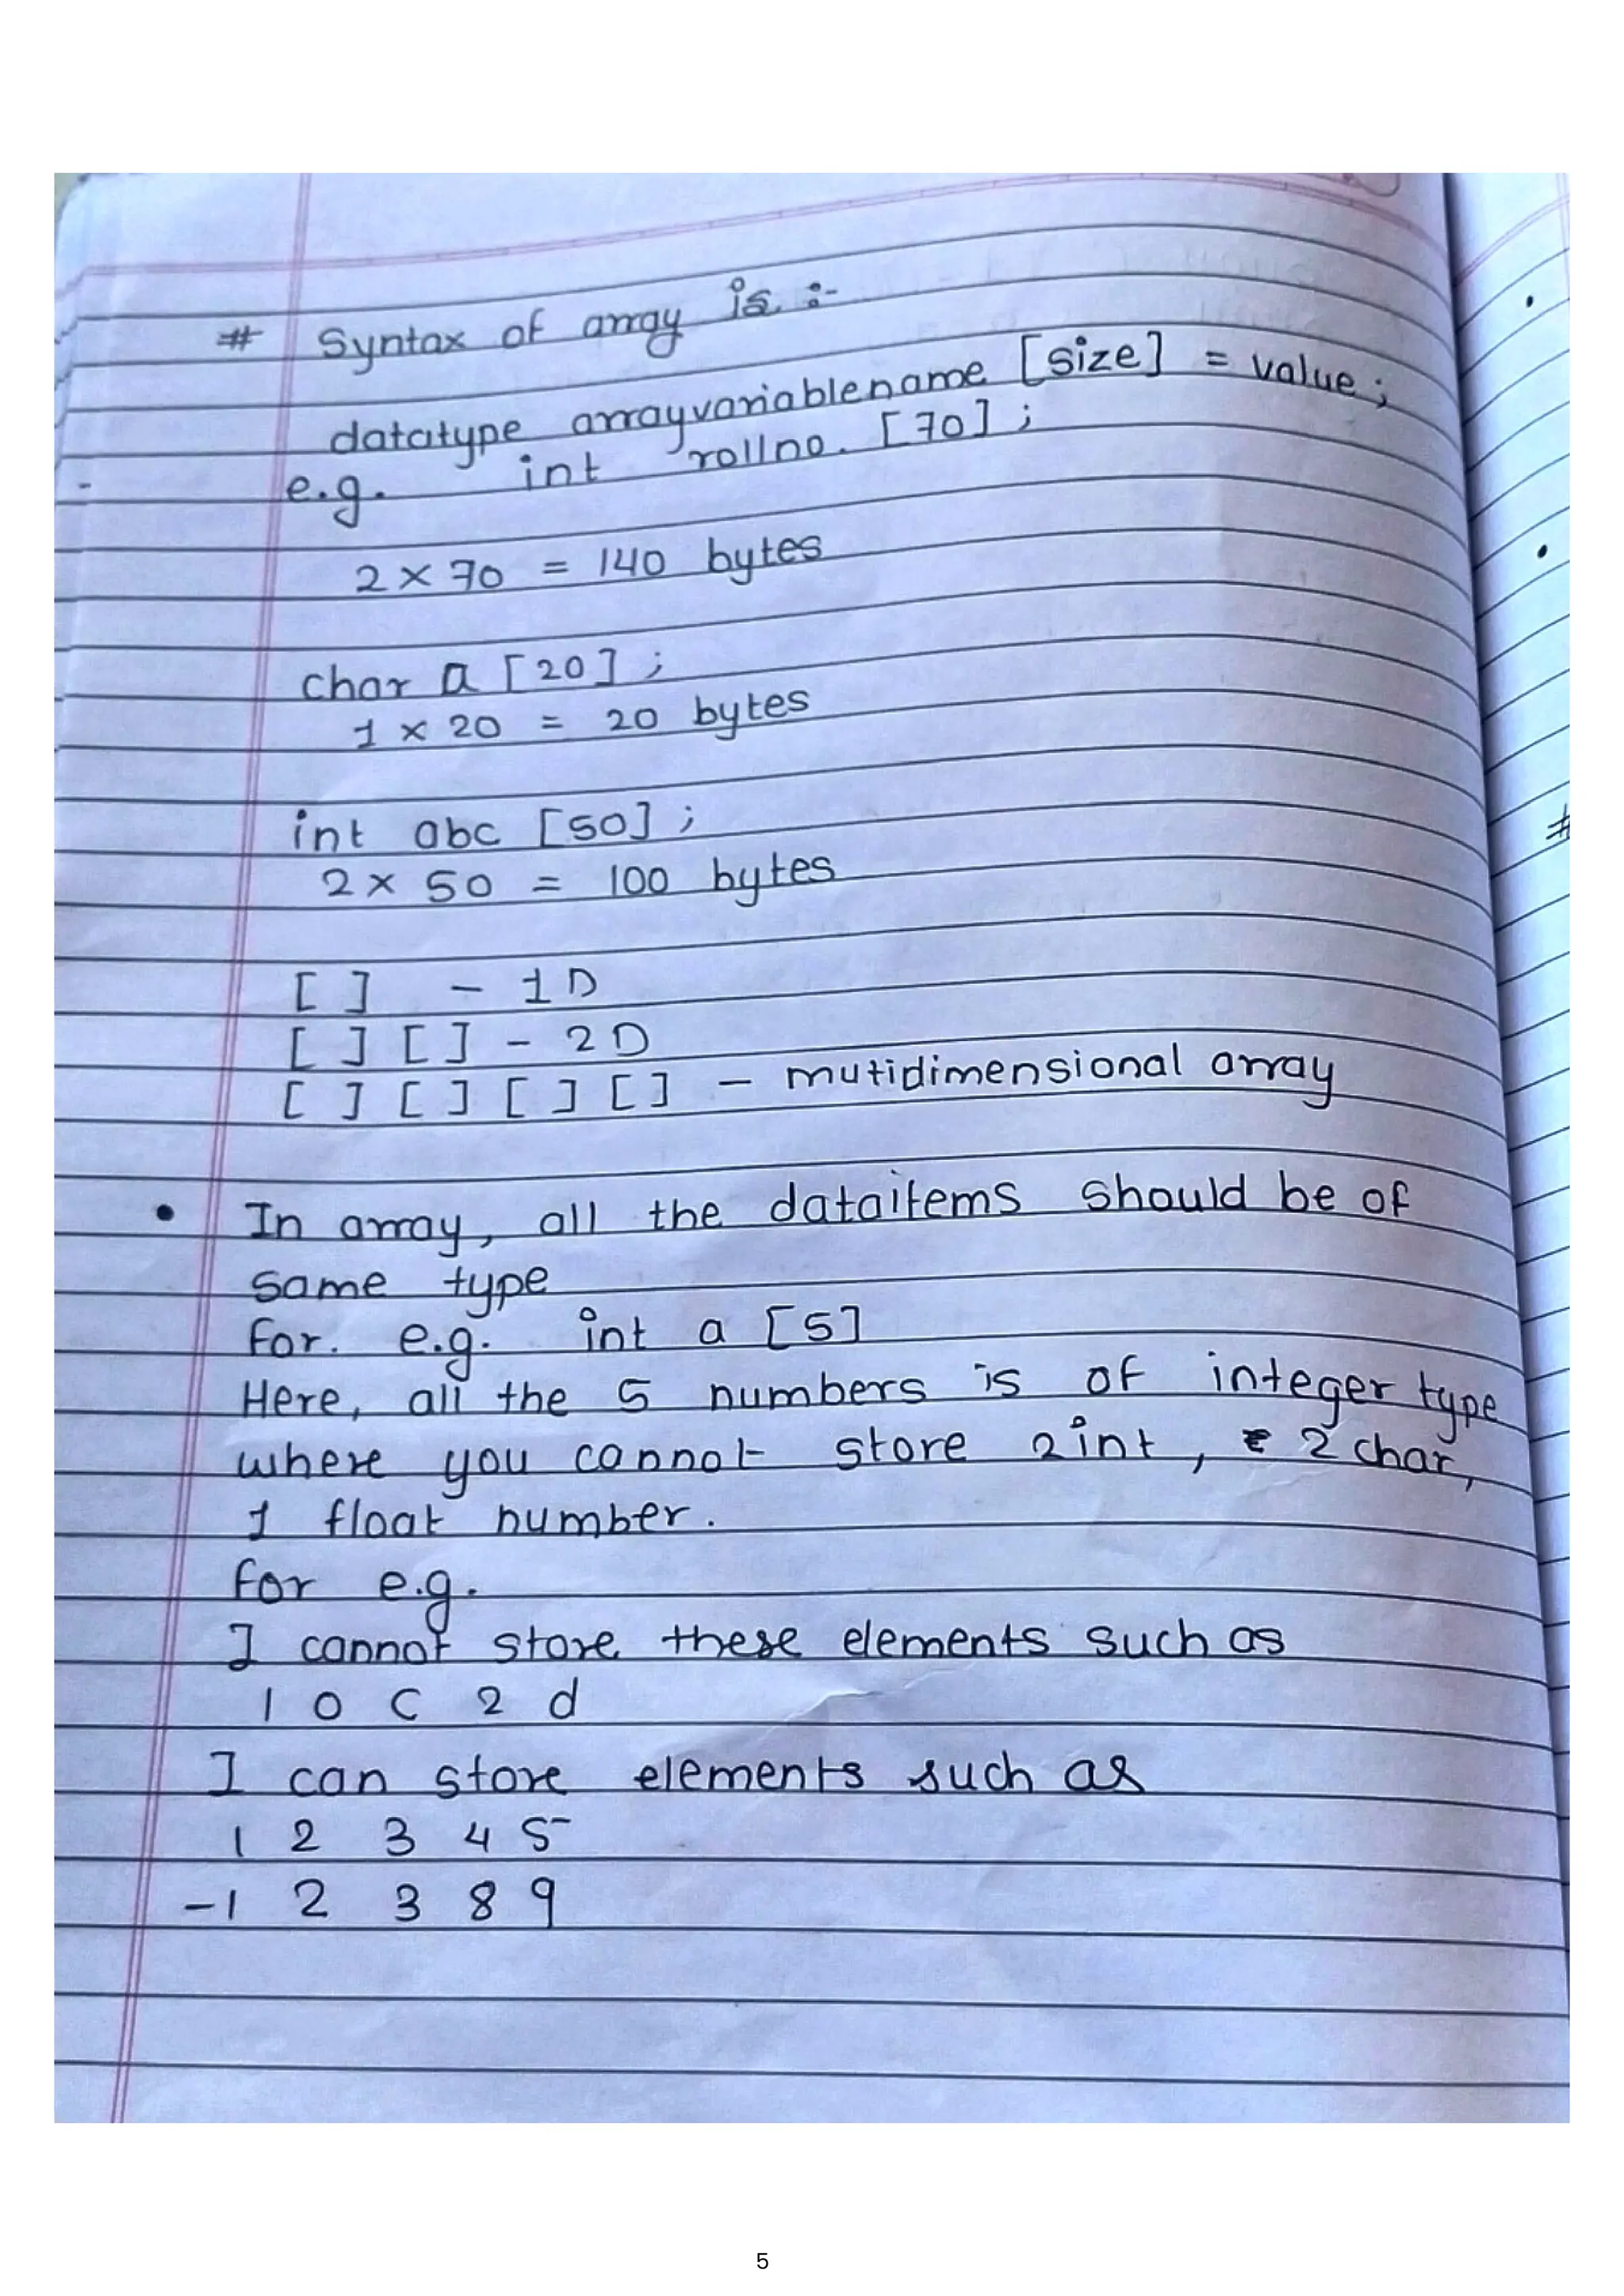 # Syntax of array is :-
datatype arrayvariablename [size] = value ;
e.g. int rollno. [70] ;
2 × 70 = 140 bytes
char a [20] ;
1 × 20 = 20 bytes
int abc [50] ;
2 × 50 = 100 bytes
[ ] - 1D
[ ] [ ] - 2D
[ ] [ ] [ ] [ ] - mutidimensional array
• In array, all the dataitems should be of
same type
For. e.g. int a [5]
Here, all the 5 numbers is of integer type
where you cannot store 2 int, 2 char,
1 float number.
for e.g.
I cannot store these elements such as
1 0 C 2 d
I can store elements such as
1 2 3 4 5
-1 2 3 8 9
5